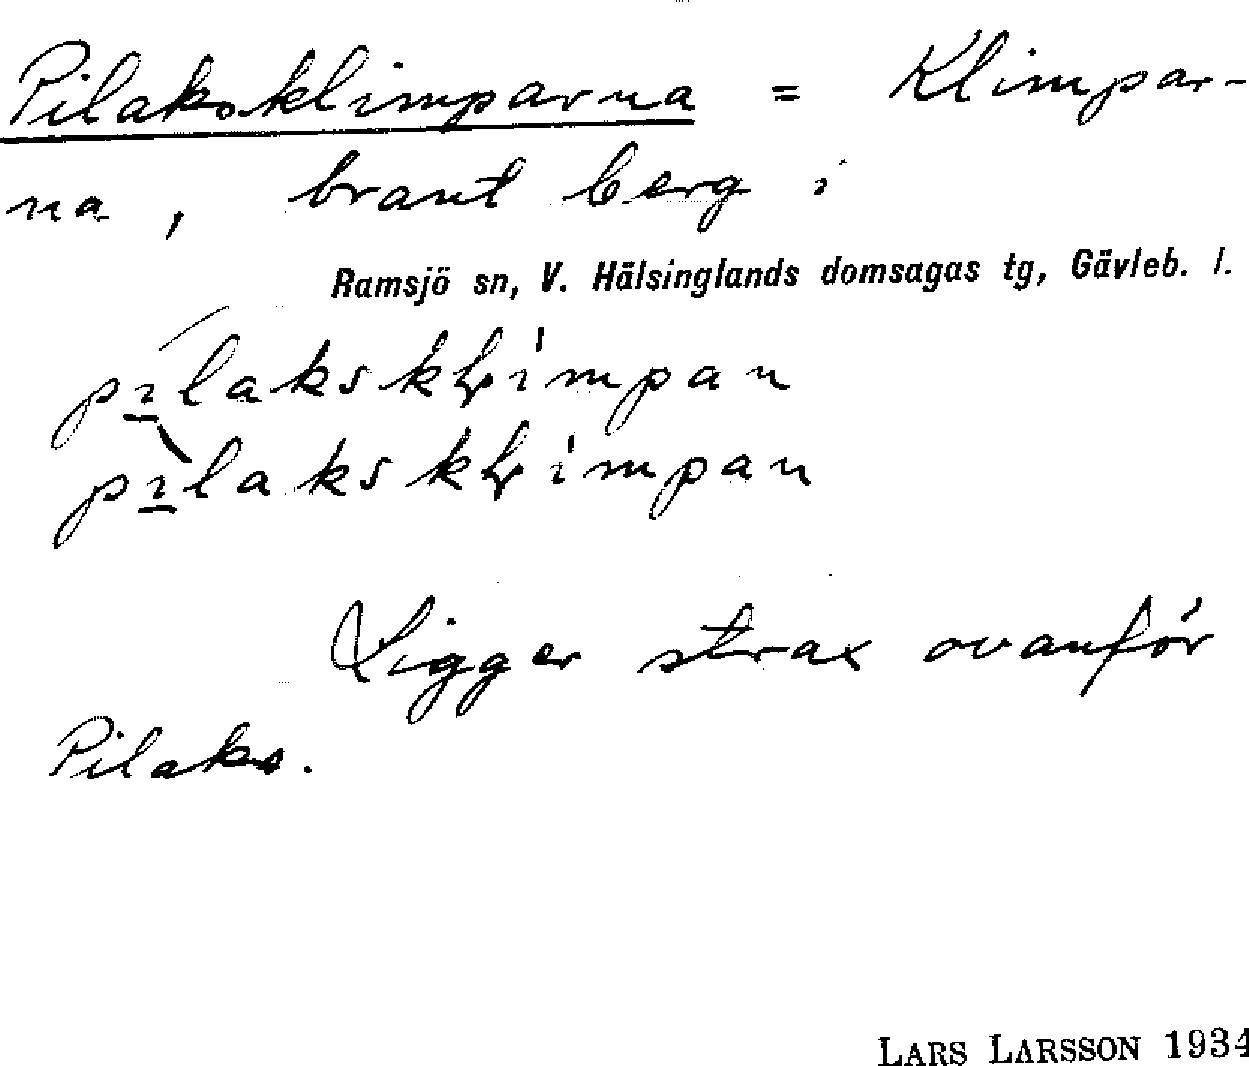 Pilaksklimparna = Klimpar-
na, brant berg i
Ramsjö sn, V. Hälsinglands domsagas tg, Gävleb. l.
pìlakskḷímpan
pìlakskḷìmpan
Ligger strax ovanför
Pilaks.
LARS LARSSON 1934